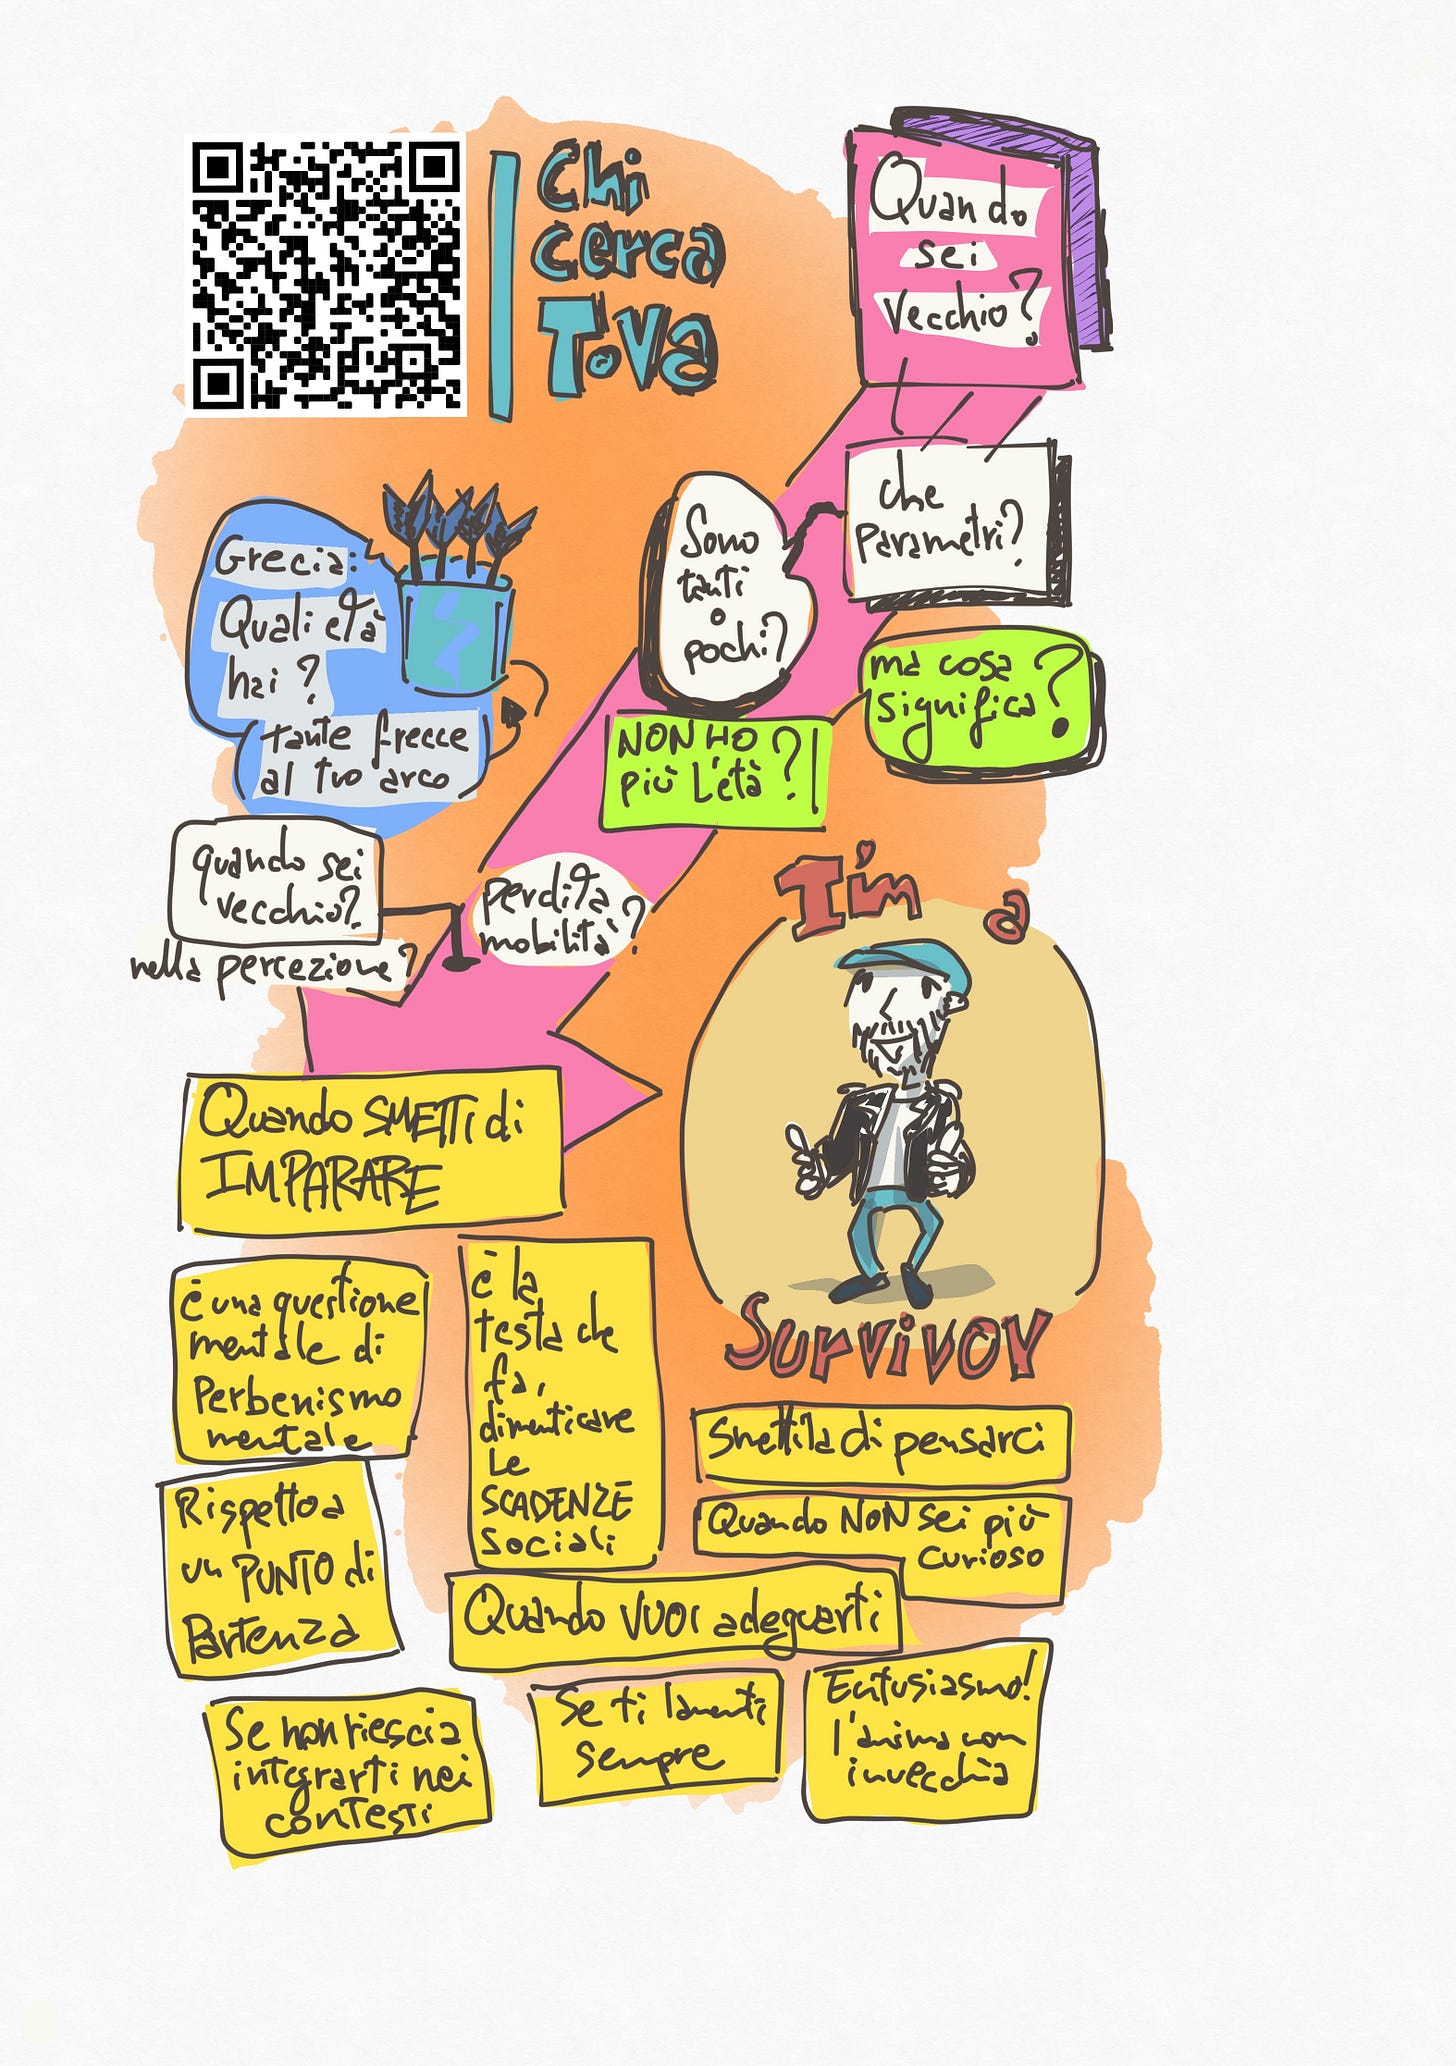 Chi
cerca
Tova
Quando
sei
vecchio?
che
parametri?
Sono
tanti
o
pochi?
ma cosa
significa?
NON HO
più l'età?!
Grecia:
Quali età
hai?
tante frecce
al tuo arco
quando sei
vecchio?
nella percezione?
perdita
mobilità?
Quando SMETTi di
IMPARARE
I'm a
Survivor
è una questione
mentale di
Perbenismo
mentale
è la
testa che
fa,
dimenticare
Le
SCADENZE
sociali
Smettila di pensarci
Quando NON sei più
curioso
Rispetto a
un PUNTO di
Partenza
Quando VUOI adeguarti
Se non riesci a
integrarti nei
contesti
Se ti lamenti
sempre
Entusiasmo!
l'anima non
invecchia